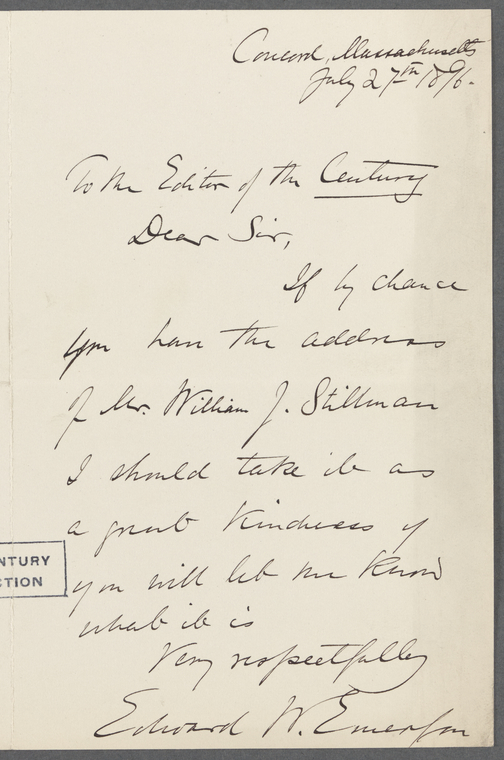 Concord, Massachusetts
July 27th 1896.
To the Editor of the Century
Dear Sir,
If by chance
you have the address
of Mr. William J. Stillman
I should take it as
a great kindness if
you will let me know
what it is
Very respectfully
Edward W. Emerson
NTURY
CTION